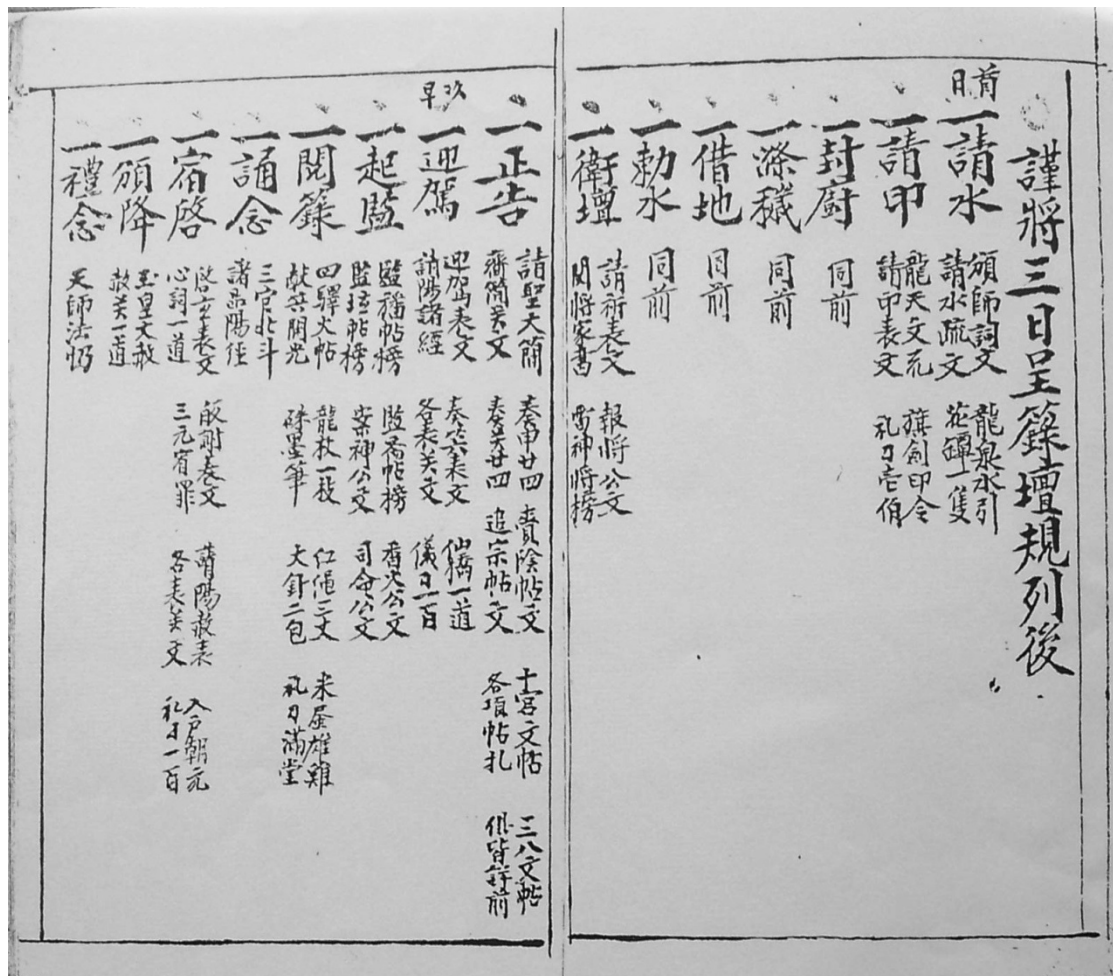 謹將三日呈籙壇規列後
首日
一請水 頒師詞文 請水疏文 龍泉水引 花罈一隻
一請印 龍天文瓦 請印表文 旗劍印令 札刀壱佰
一封廚 同前
一滌穢 同前
一借地 同前
一勅水 同前
一衛壇 請祈表文 関將家書 報將公文 雷神將榜
一正告 請聖大簡 齋簡関文 奏申廿四 奏关廿四 賫陰帖文 追宗帖文 十宮文帖 各項帖扎 三八文帖 俱皆詳前
次早
一迎駕 迎駕表文 請陽諸經 奏关表文 各表关文 仙橋一道 儀刀一百
一起監 監旛帖榜 監壇帖榜 監齋帖榜 案神公文 齋次公文 司命公文
一開籙 四驛火帖 献供開光 龍杖一枝 硃墨筆 仁绳三丈 大針二包 米居雄雞 札刀滿堂
一誦念 三官北斗 諸品陽经
一宿啓 啓玄表文 心詞一道 酧謝表文 三元宥罪 請陽赦表 各表关文 入戶朝元 札刀一百
一頒降 玉皇文赦 赦关一道
一禮念 天師法忏